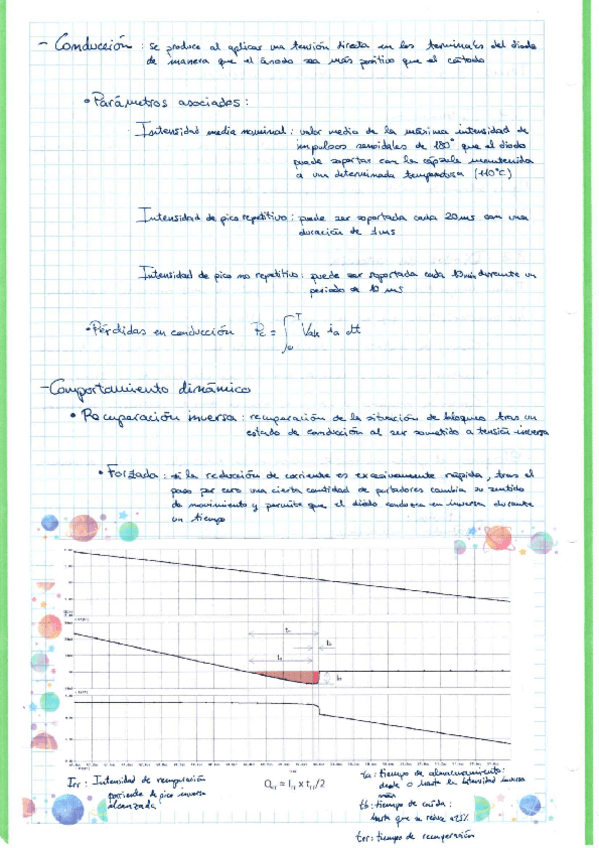 - Conducción : se produce al aplicar una tensión directa en los terminales del diodo
de manera que el ánodo sea más positivo que el cátodo
• Parámetros asociados :
Intensidad media nominal : valor medio de la máxima intensidad de
impulsos senoidales de 180° que el diodo
puede soportar con la cápsula mantenida
a una determinada temperatura (110°C)
Intensidad de pico repetitivo : puede ser soportada cada 20ms con una
duración de 1ms
Intensidad de pico no repetitivo : puede ser soportada cada 10min durante un
periodo de 10 ms
• Pérdidas en conducción Pc = ∫₀ᵀ Vak ia dt
- Comportamiento dinámico
• Recuperación inversa : recuperación de la situación de bloqueo tras un
estado de conducción al ser sometido a tensión inversa
• Forzada : si la reducción de corriente es excesivamente rápida, tras el
paso por cero una cierta cantidad de portadores cambia su sentido
de movimiento y permite que el diodo conduzca en inversa durante
un tiempo
Irr : Intensidad de recuperación
corriente de pico inversa
alcanzada
Qrr = Irr x trr/2
ta : tiempo de almacenamiento :
desde 0 hasta la intensidad inversa
máx
tb : tiempo de caída :
hasta que se reduce a 25%
trr : tiempo de recuperación